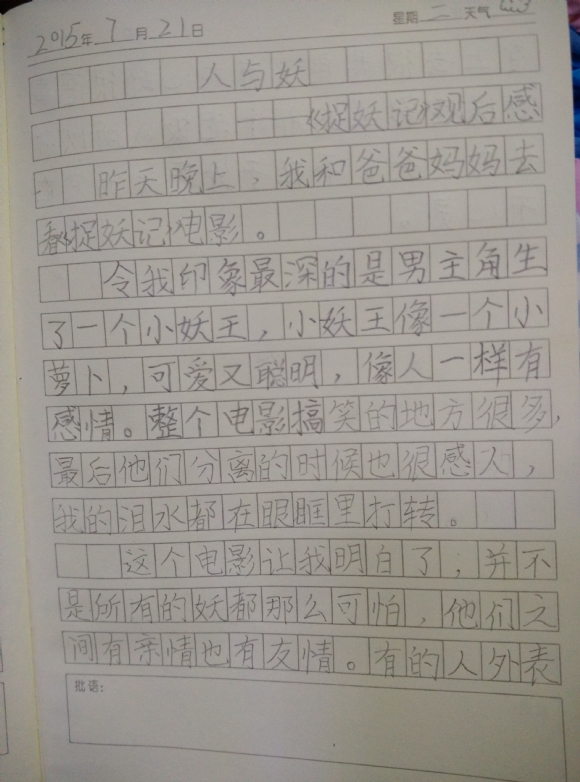 2015年7月21日 星期二 天气
人与妖
——《捉妖记》观后感
昨天晚上，我和爸爸妈妈去
看《捉妖记》电影。
令我印象最深的是男主角生
了一个小妖王，小妖王像一个小
萝卜，可爱又聪明，像人一样有
感情。整个电影搞笑的地方很多，
最后他们分离的时候也很感人，
我的泪水都在眼眶里打转。
这个电影让我明白了，并不
是所有的妖都那么可怕，他们之
间有亲情也有友情。有的人外表
批语：